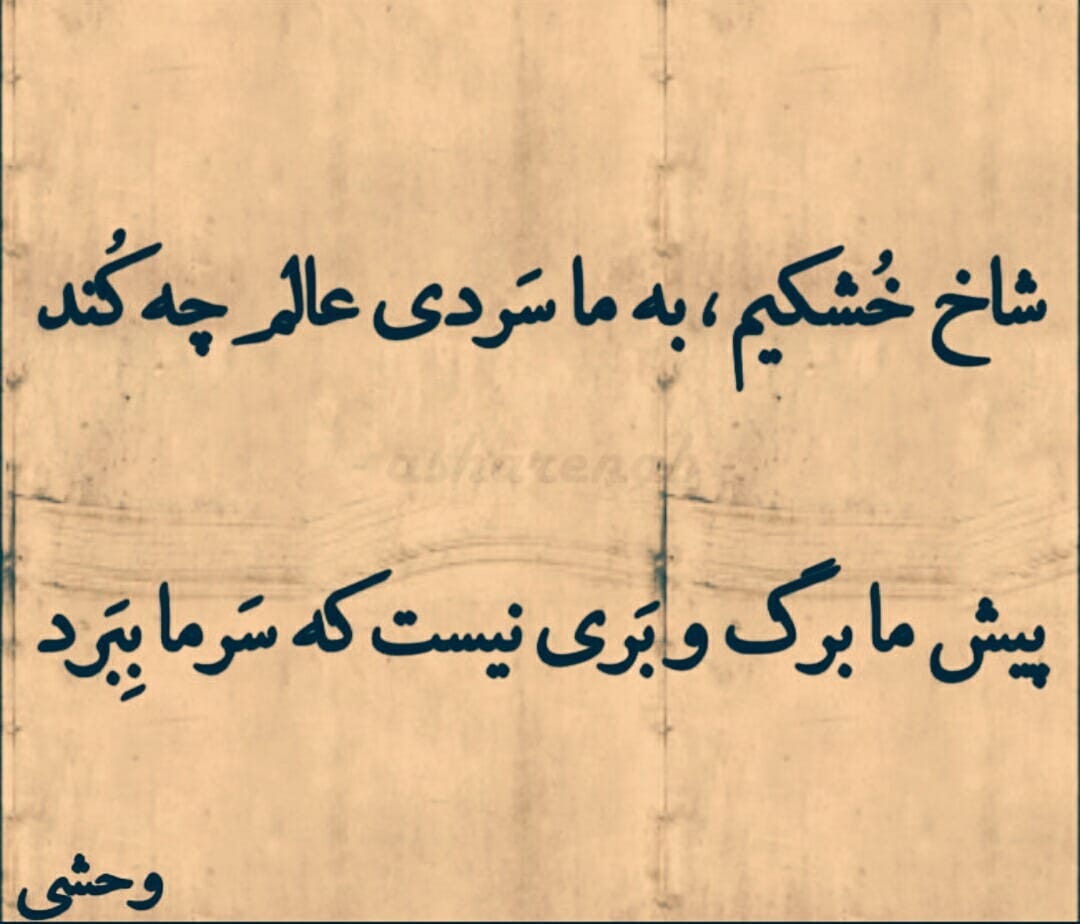 شاخ خُشکیم ، به ما سَردی عالم چه کُند
- asharenab -
پیش ما برگ و بَری نیست که سَرما بِبَرد
وحشی